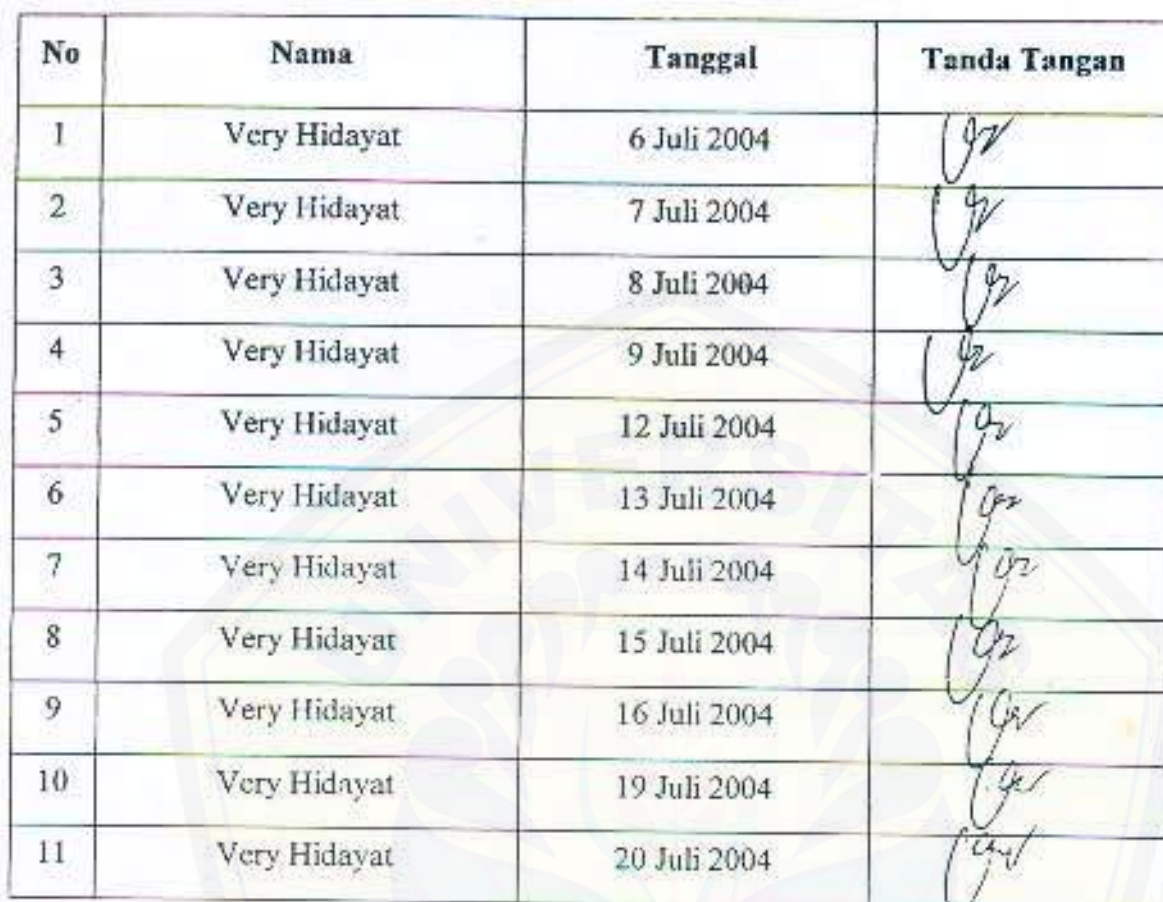 No Nama Tanggal Tanda Tangan
1 Very Hidayat 6 Juli 2004
2 Very Hidayat 7 Juli 2004
3 Very Hidayat 8 Juli 2004
4 Very Hidayat 9 Juli 2004
5 Very Hidayat 12 Juli 2004
6 Very Hidayat 13 Juli 2004
7 Very Hidayat 14 Juli 2004
8 Very Hidayat 15 Juli 2004
9 Very Hidayat 16 Juli 2004
10 Very Hidayat 19 Juli 2004
11 Very Hidayat 20 Juli 2004
UNIVERSITAS